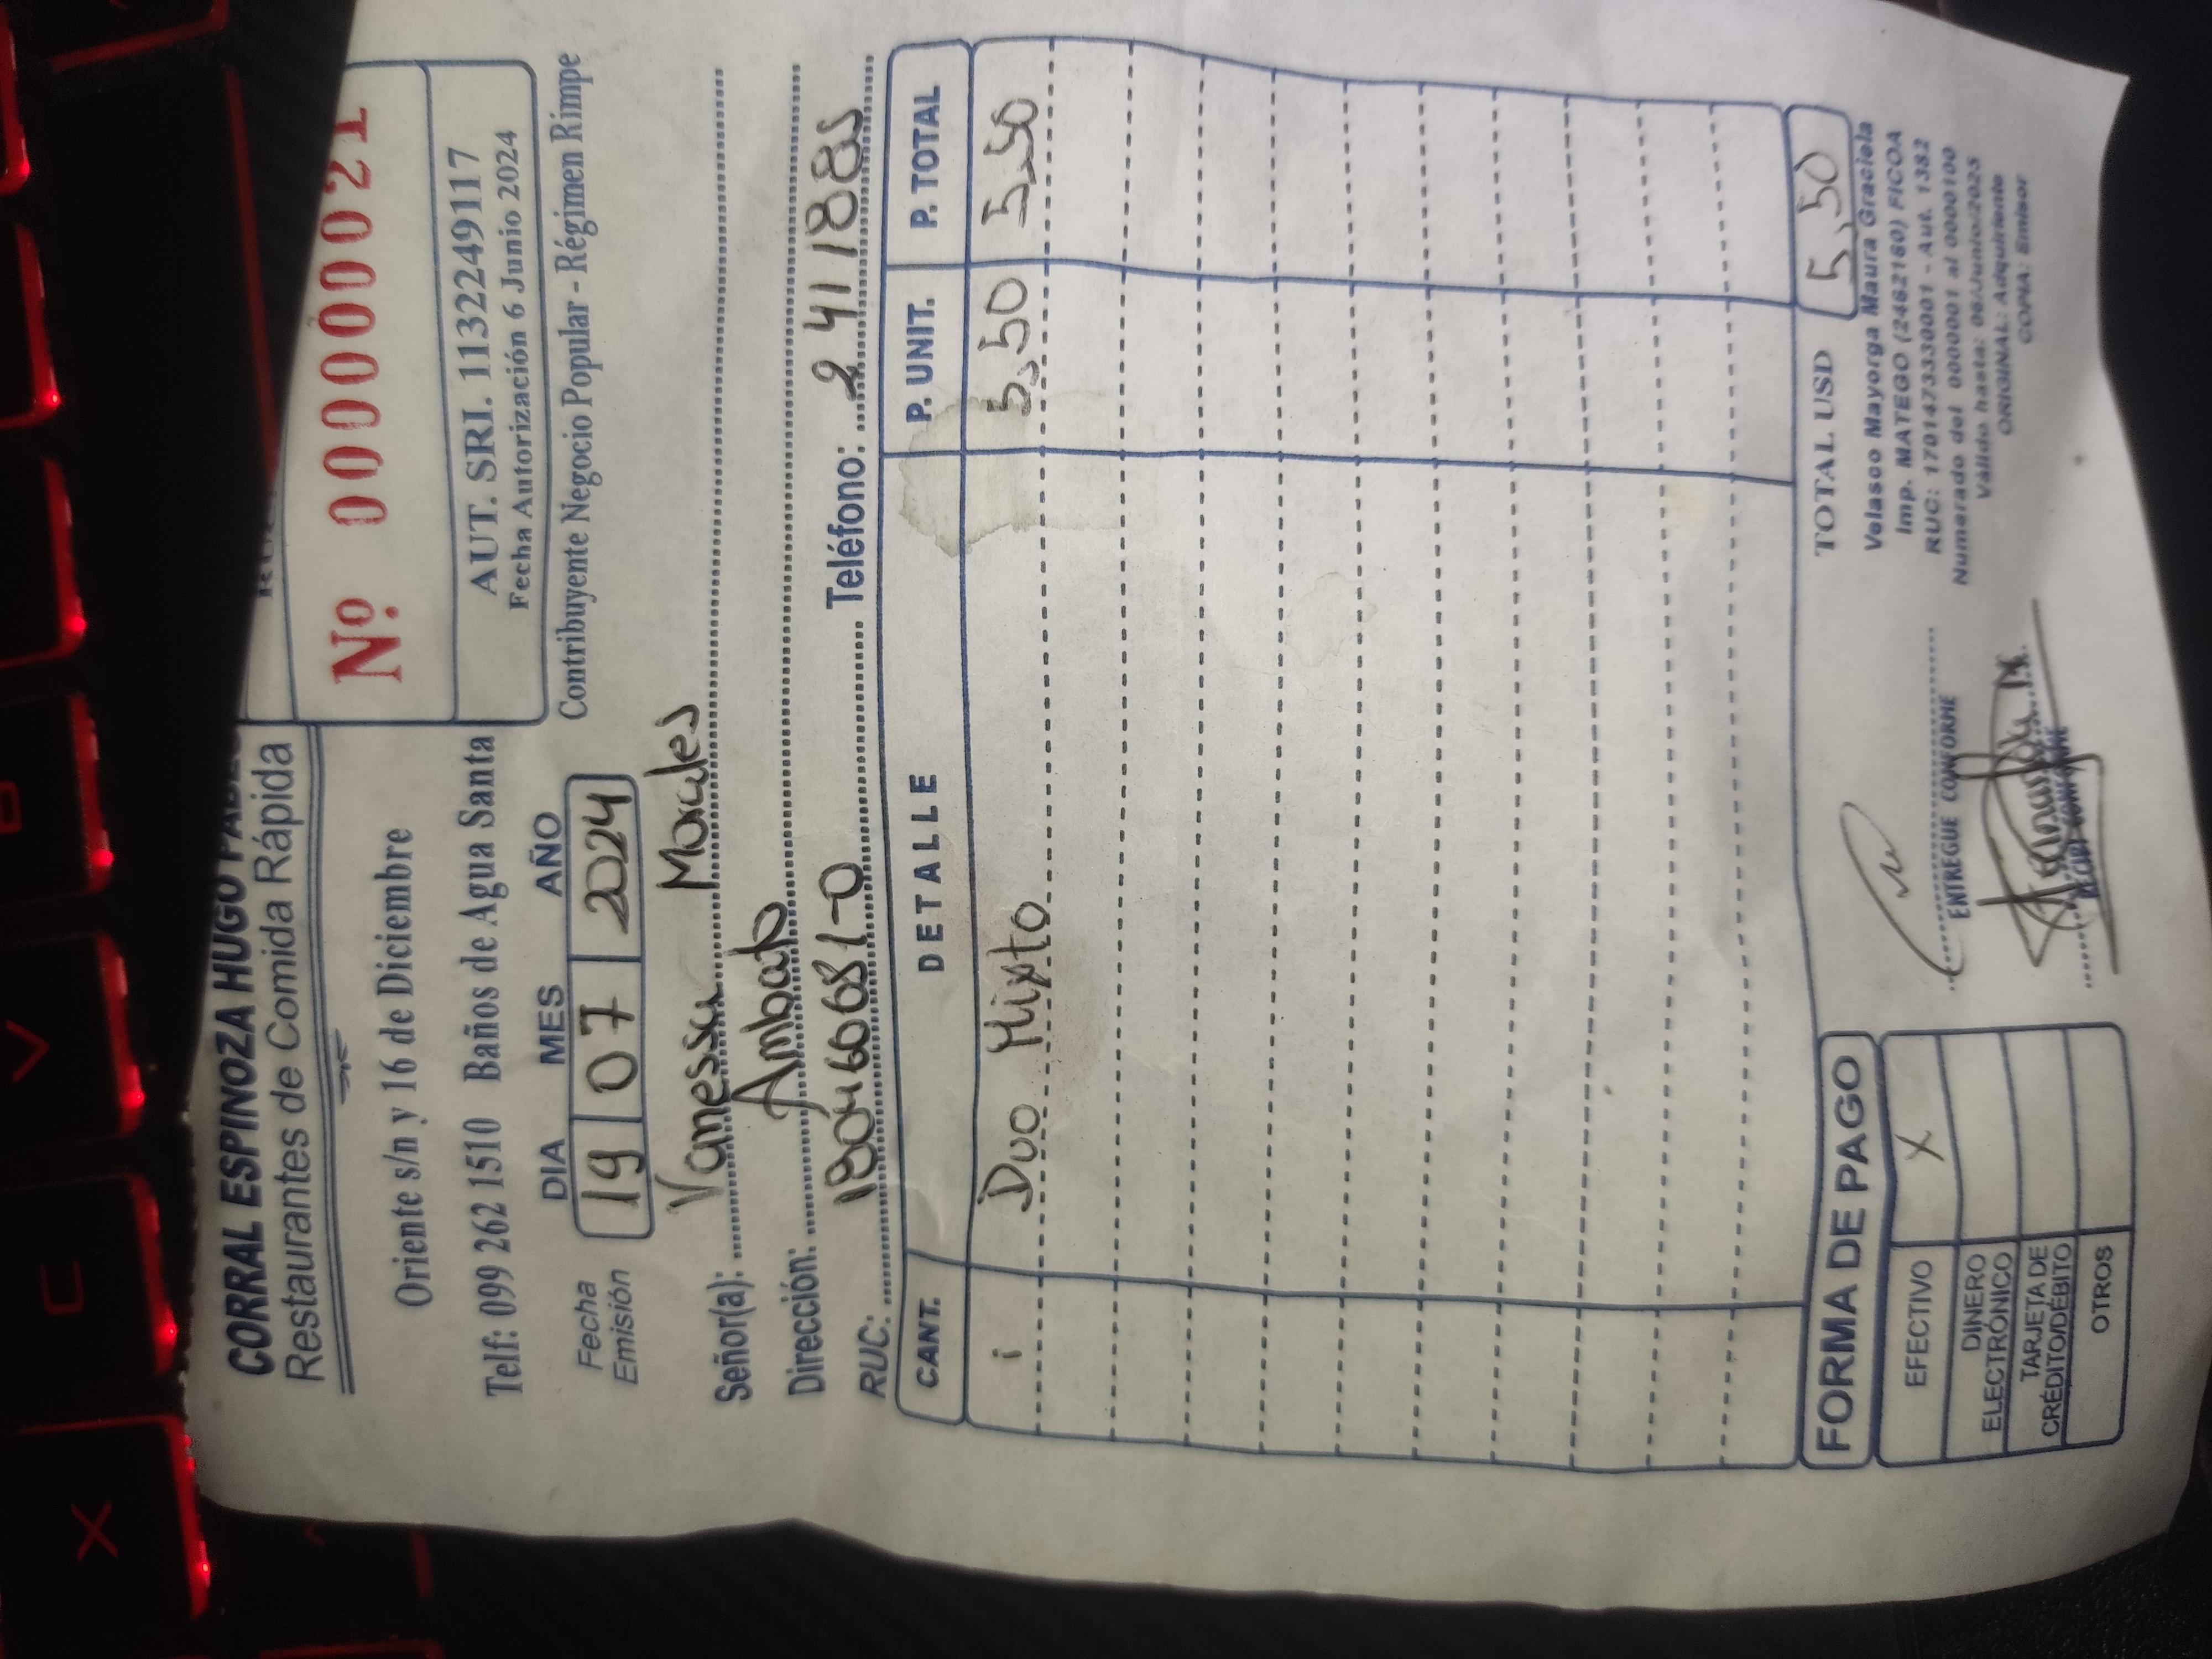 CORRAL ESPINOZA HUGO
Restaurantes de Comida Rápida
Oriente s/n y 16 de Diciembre
Telf: 099 262 1510 Baños de Agua Santa
Nº 000000021
AUT. SRI. 1132249117
Fecha Autorización 6 Junio 2024
Contribuyente Negocio Popular - Régimen Rimpe
DIA MES AÑO
Fecha Emisión 19 07 2024
Señor(a): Vanessa Morales
Dirección: Ambato
RUC: 180460681-0 Teléfono: 2411885
CANT. DETALLE P. UNIT. P. TOTAL
1 Duo Mixto 5,50 5,50
FORMA DE PAGO
EFECTIVO X
DINERO ELECTRÓNICO
TARJETA DE CRÉDITO/DÉBITO
OTROS
ENTREGUE CONFORME
RECIBI CONFORME
TOTAL USD 5,50
Velasco Mayorga Maura Graciela
Imp. MATEGO (2462160) FICOA
RUC: 1701473330001 - Aut. 1382
Numerado del 0000001 al 0000100
Válido hasta: 06/Junio/2025
ORIGINAL: Adquiriente
COPIA: Emisor
X C V B